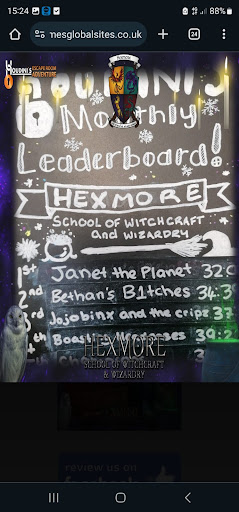 15:24
88%
nesglobalsites.co.uk
24
HOUDINI'S
ESCAPE ROOM
ADVENTURE
HOUDINI'S
Monthly
Leaderboard!
HEXMORE
SCHOOL OF WITCHCRAFT
AND WIZARDRY
1st Janet the Planet 32:0
2nd Bethan's B1tches 34:3
3rd Jojobinx and the crips 37:
4th Boast Motosses 39:2
HEXMORE
SCHOOL OF WITCHCRAFT
& WIZARDRY
review us on